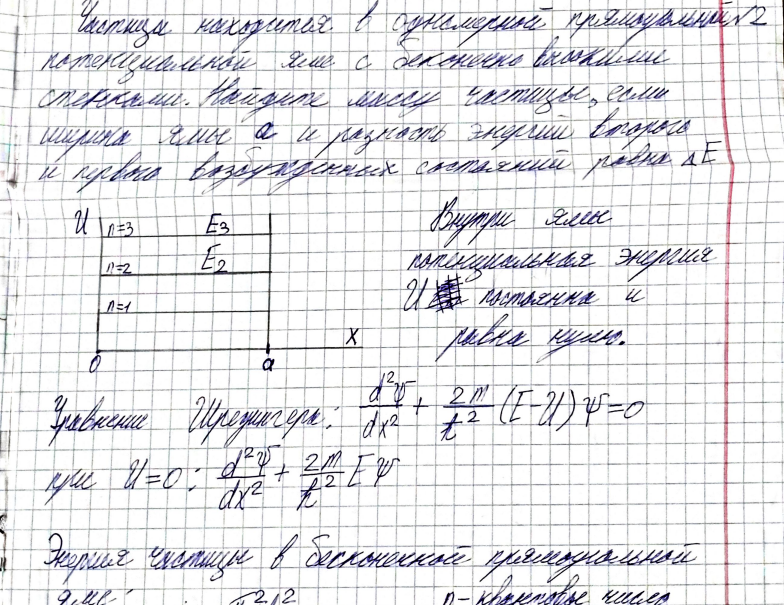 Частица находится в одномерной прямоугольной №2
потенциальной яме с бесконечно высокими
стенками. Найдите массу частицы, если
ширина ямы a и разность энергий второго
и первого возбужденных состояний равна ΔE
U n=3 E3
n=2 E2
n=1
0 a X
Внутри ямы
потенциальная энергия
U постоянна и
равна нулю.
Уравнение Шредингера: d²Ψ/dx² + 2m/ħ² (E-U)Ψ=0
при U=0: d²Ψ/dx² + 2m/ħ² EΨ
Энергия частицы в бесконечной прямоугольной
яме: n-квантовое число